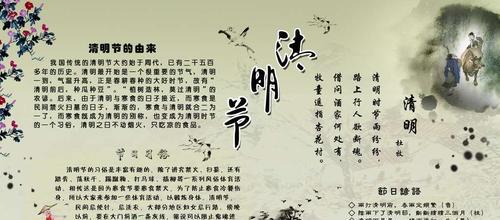 清明节的由来
我国传统的清明节大约始于周代，已有二千五百
多年的历史。清明最开始是一个很重要的节气，清明
一到，气温升高，正是春耕春种的大好时节，故有"
清明前后，种瓜种豆"。"植树造林，莫过清明"的
农谚。后来，由于清明与寒食的日子接近，而寒食是
民间禁火扫墓的日子，渐渐的，寒食与清明就合二为
一了，而寒食既成为清明的别称，也变成为清明时节
的一个习俗，清明之日不动烟火，只吃凉的食品。
节日习俗
清明节的习俗是丰富有趣的，除了讲究禁火、扫墓，还有
踏青、荡秋千、蹴鞠、打马球、插柳等一系列风俗体育活
动。相传这是因为寒食节要寒食禁火，为了防止寒食冷餐伤
身，所以大家来参加一些体育活动，以锻炼身体。清明节，
清明节
清明
杜牧
清明时节雨纷纷，
路上行人欲断魂。
借问酒家何处有，
牧童遥指杏花村。
节日谚语